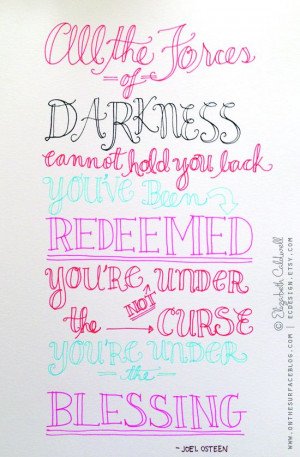 All the Forces
of
DARKNESS
cannot hold you back
You've Been
REDEEMED
YOU'RE UNDER
NOT
the → CURSE
YOU'RE UNDER
the
BLESSING
~ JOEL OSTEEN
© Elizabeth Caldwell
WWW.ONTHESURFACEBLOG.COM | ECDESIGN.ETSY.COM